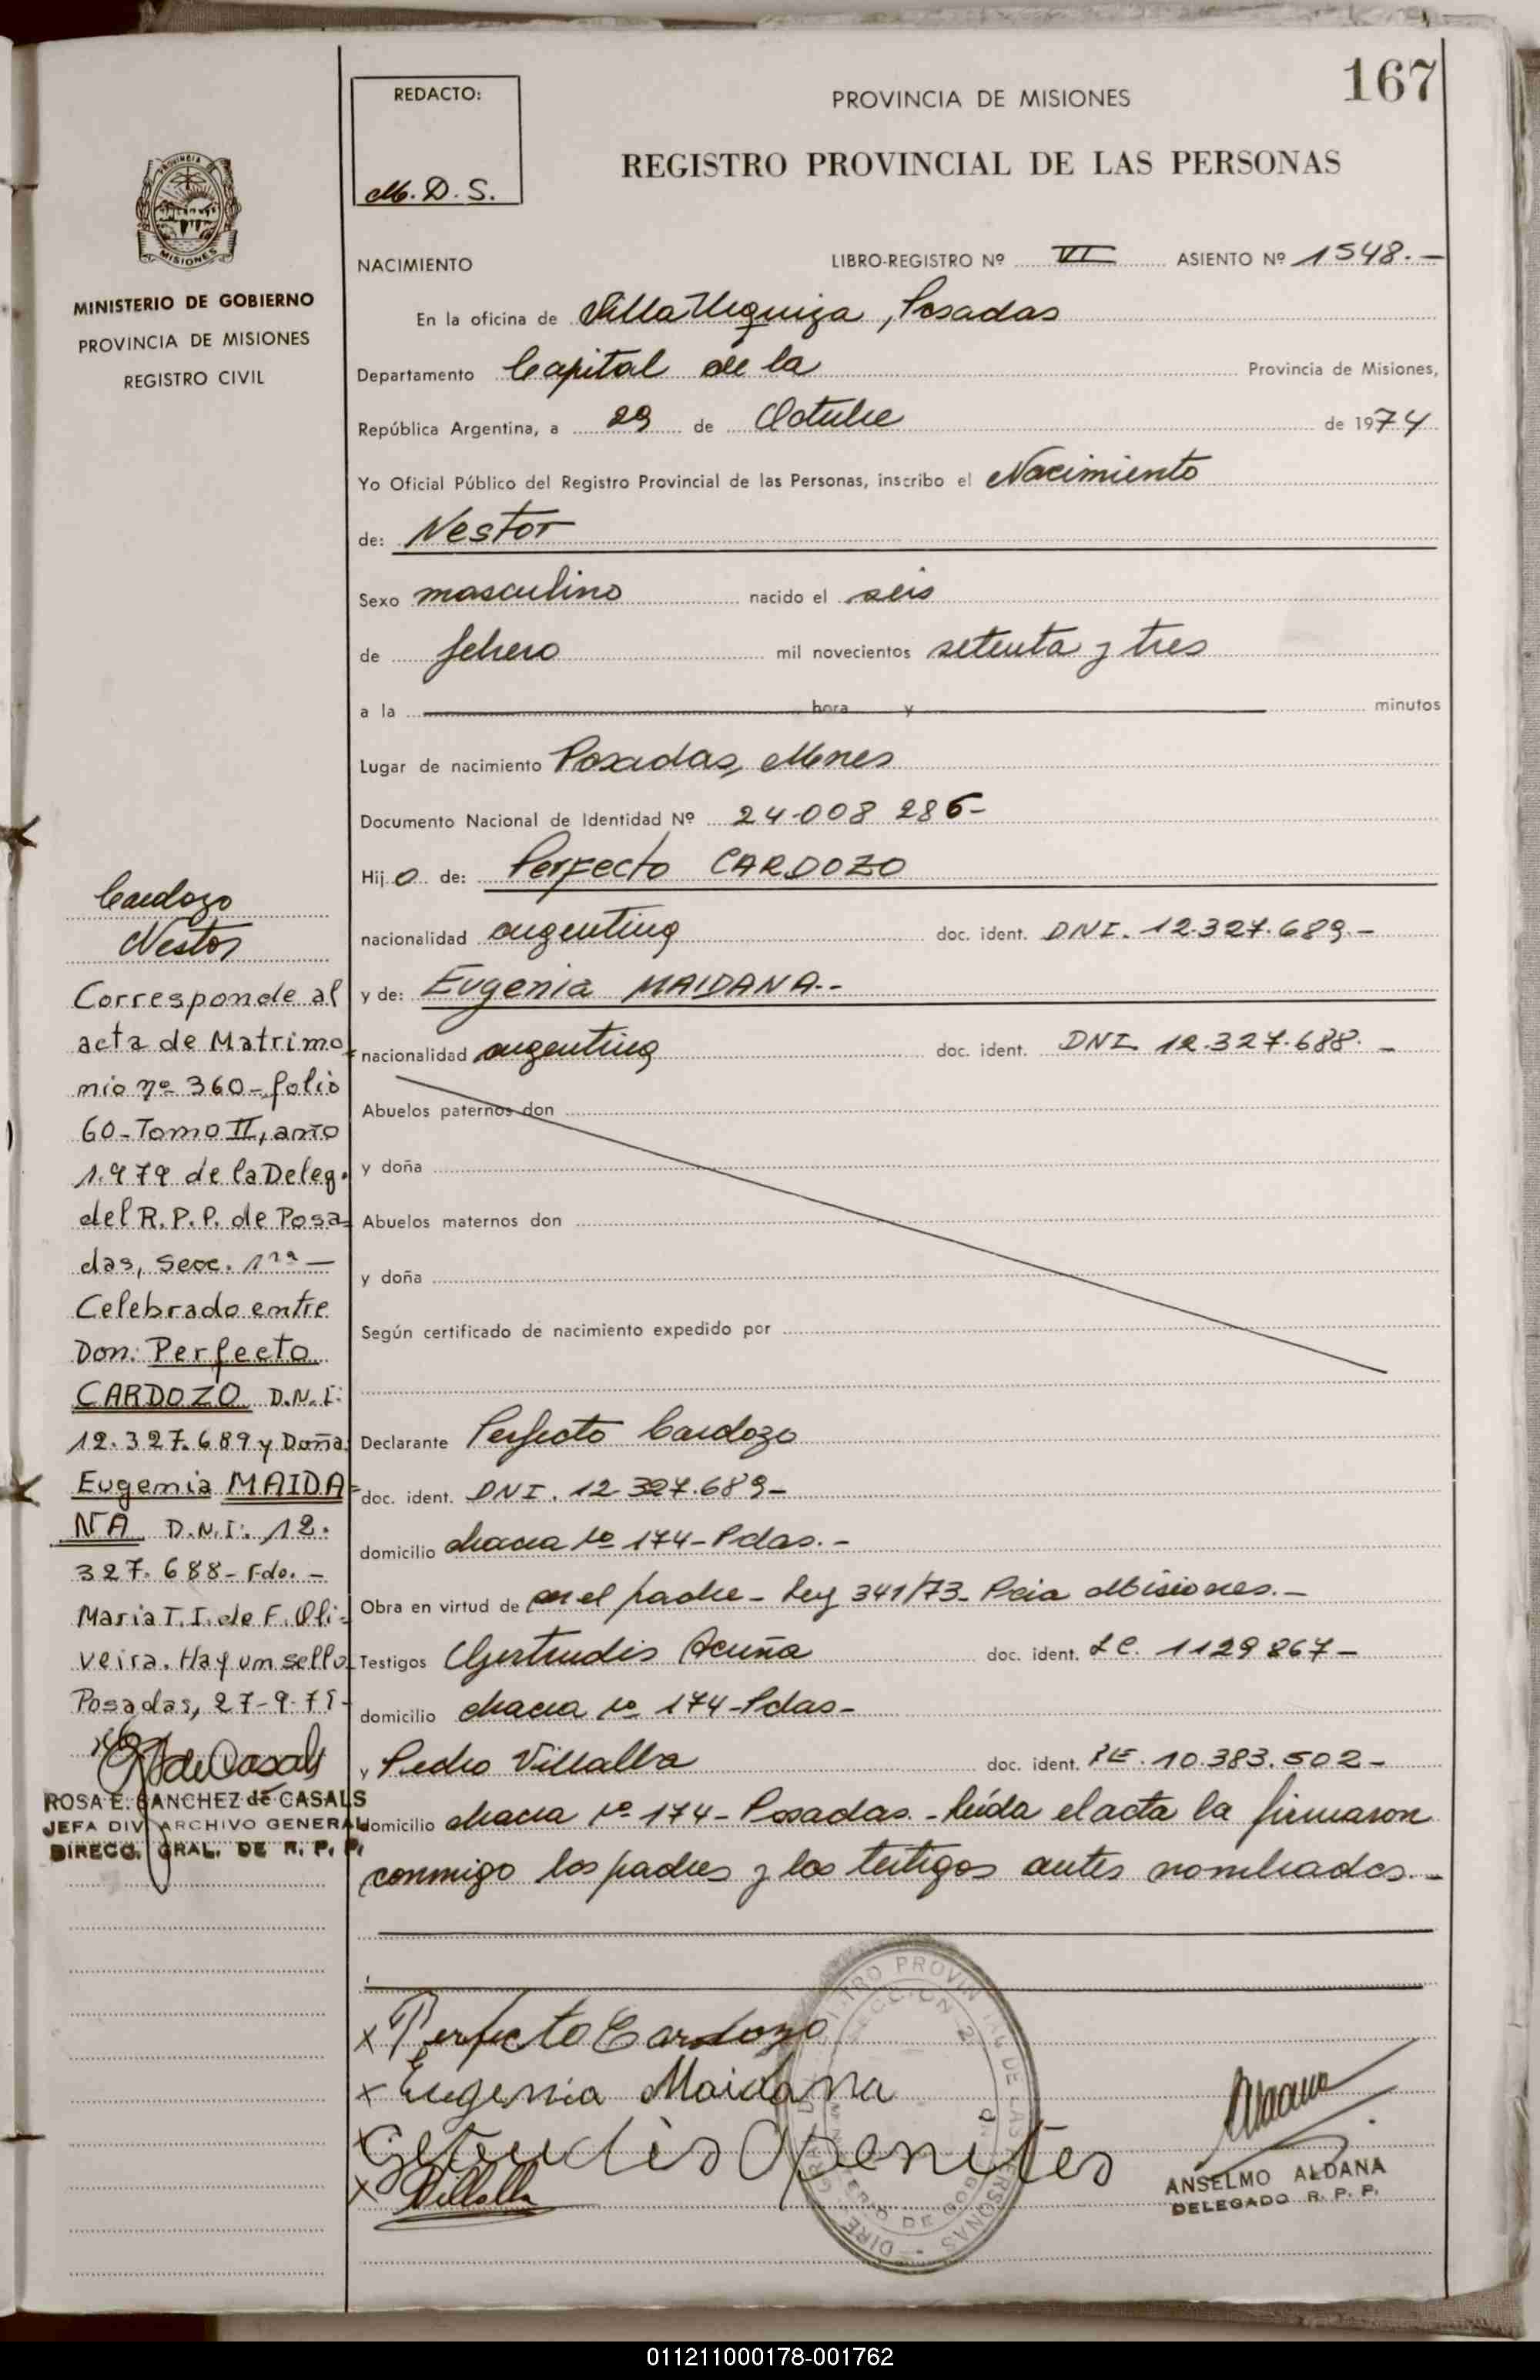 167
REDACTO:
M. D. S.
PROVINCIA DE MISIONES
REGISTRO PROVINCIAL DE LAS PERSONAS
MISIONES
MINISTERIO DE GOBIERNO
PROVINCIA DE MISIONES
REGISTRO CIVIL
NACIMIENTO LIBRO-REGISTRO Nº VI ASIENTO Nº 1548.-
En la oficina de Villa Urquiza, Posadas
Departamento Capital de la Provincia de Misiones,
República Argentina, a 29 de Octubre de 1974
Yo Oficial Público del Registro Provincial de las Personas, inscribo el Nacimiento
de: Nestor
Sexo masculino nacido el seis
de febrero mil novecientos setenta y tres
a la hora y minutos
Lugar de nacimiento Posadas, Mnes
Documento Nacional de Identidad Nº 24.008 286-
Hijo de: Perfecto CARDOZO
nacionalidad argentina doc. ident. DNI. 12.327.689.-
y de: Eugenia MAIDANA.-
nacionalidad argentina doc. ident. DNI 12.327.688. -
Abuelos paternos don
y doña
Abuelos maternos don
y doña
Según certificado de nacimiento expedido por
Declarante Perfecto Cardozo
doc. ident. DNI. 12.327.689-
domicilio chacra Nº 174-Pdas.-
Obra en virtud de ser el padre - Ley 341/73- Pcia Misiones.-
Testigos Gertrudis Acuña doc. ident. LC. 1129867-
domicilio chacra Nº 174-Pdas-
y Pedro Villalba doc. ident. 10.383.502-
domicilio chacra Nº 174- Posadas.- leída el acta la firmaron
conmigo los padres y los testigos antes nombrados.-
Cardozo
Nestor
Corresponde al
acta de Matrimo
nio nº 360-folio
60-Tomo II, año
1.979 de la Deleg.
del R.P.P. de Posa-
das, Secc. 1ra-
Celebrado entre
Don: Perfecto
CARDOZO D.N.I:
12.327.689 y Doña
Eugenia MAIDA-
NA D.N.I: 12.
327.688- Fdo.-
Maria T. I. de F. Oli-
veira. Hay un sello
Posadas, 27-9-79-
ROSA E. SANCHEZ de CASALS
JEFA DIV ARCHIVO GENERAL
DIRECC. GRAL. DE R. P. P.
x Perfecto Cardozo
x Eugenia Maidana
x Villalba
ANSELMO ALDANA
DELEGADO R. P. P.
011211000178-001762